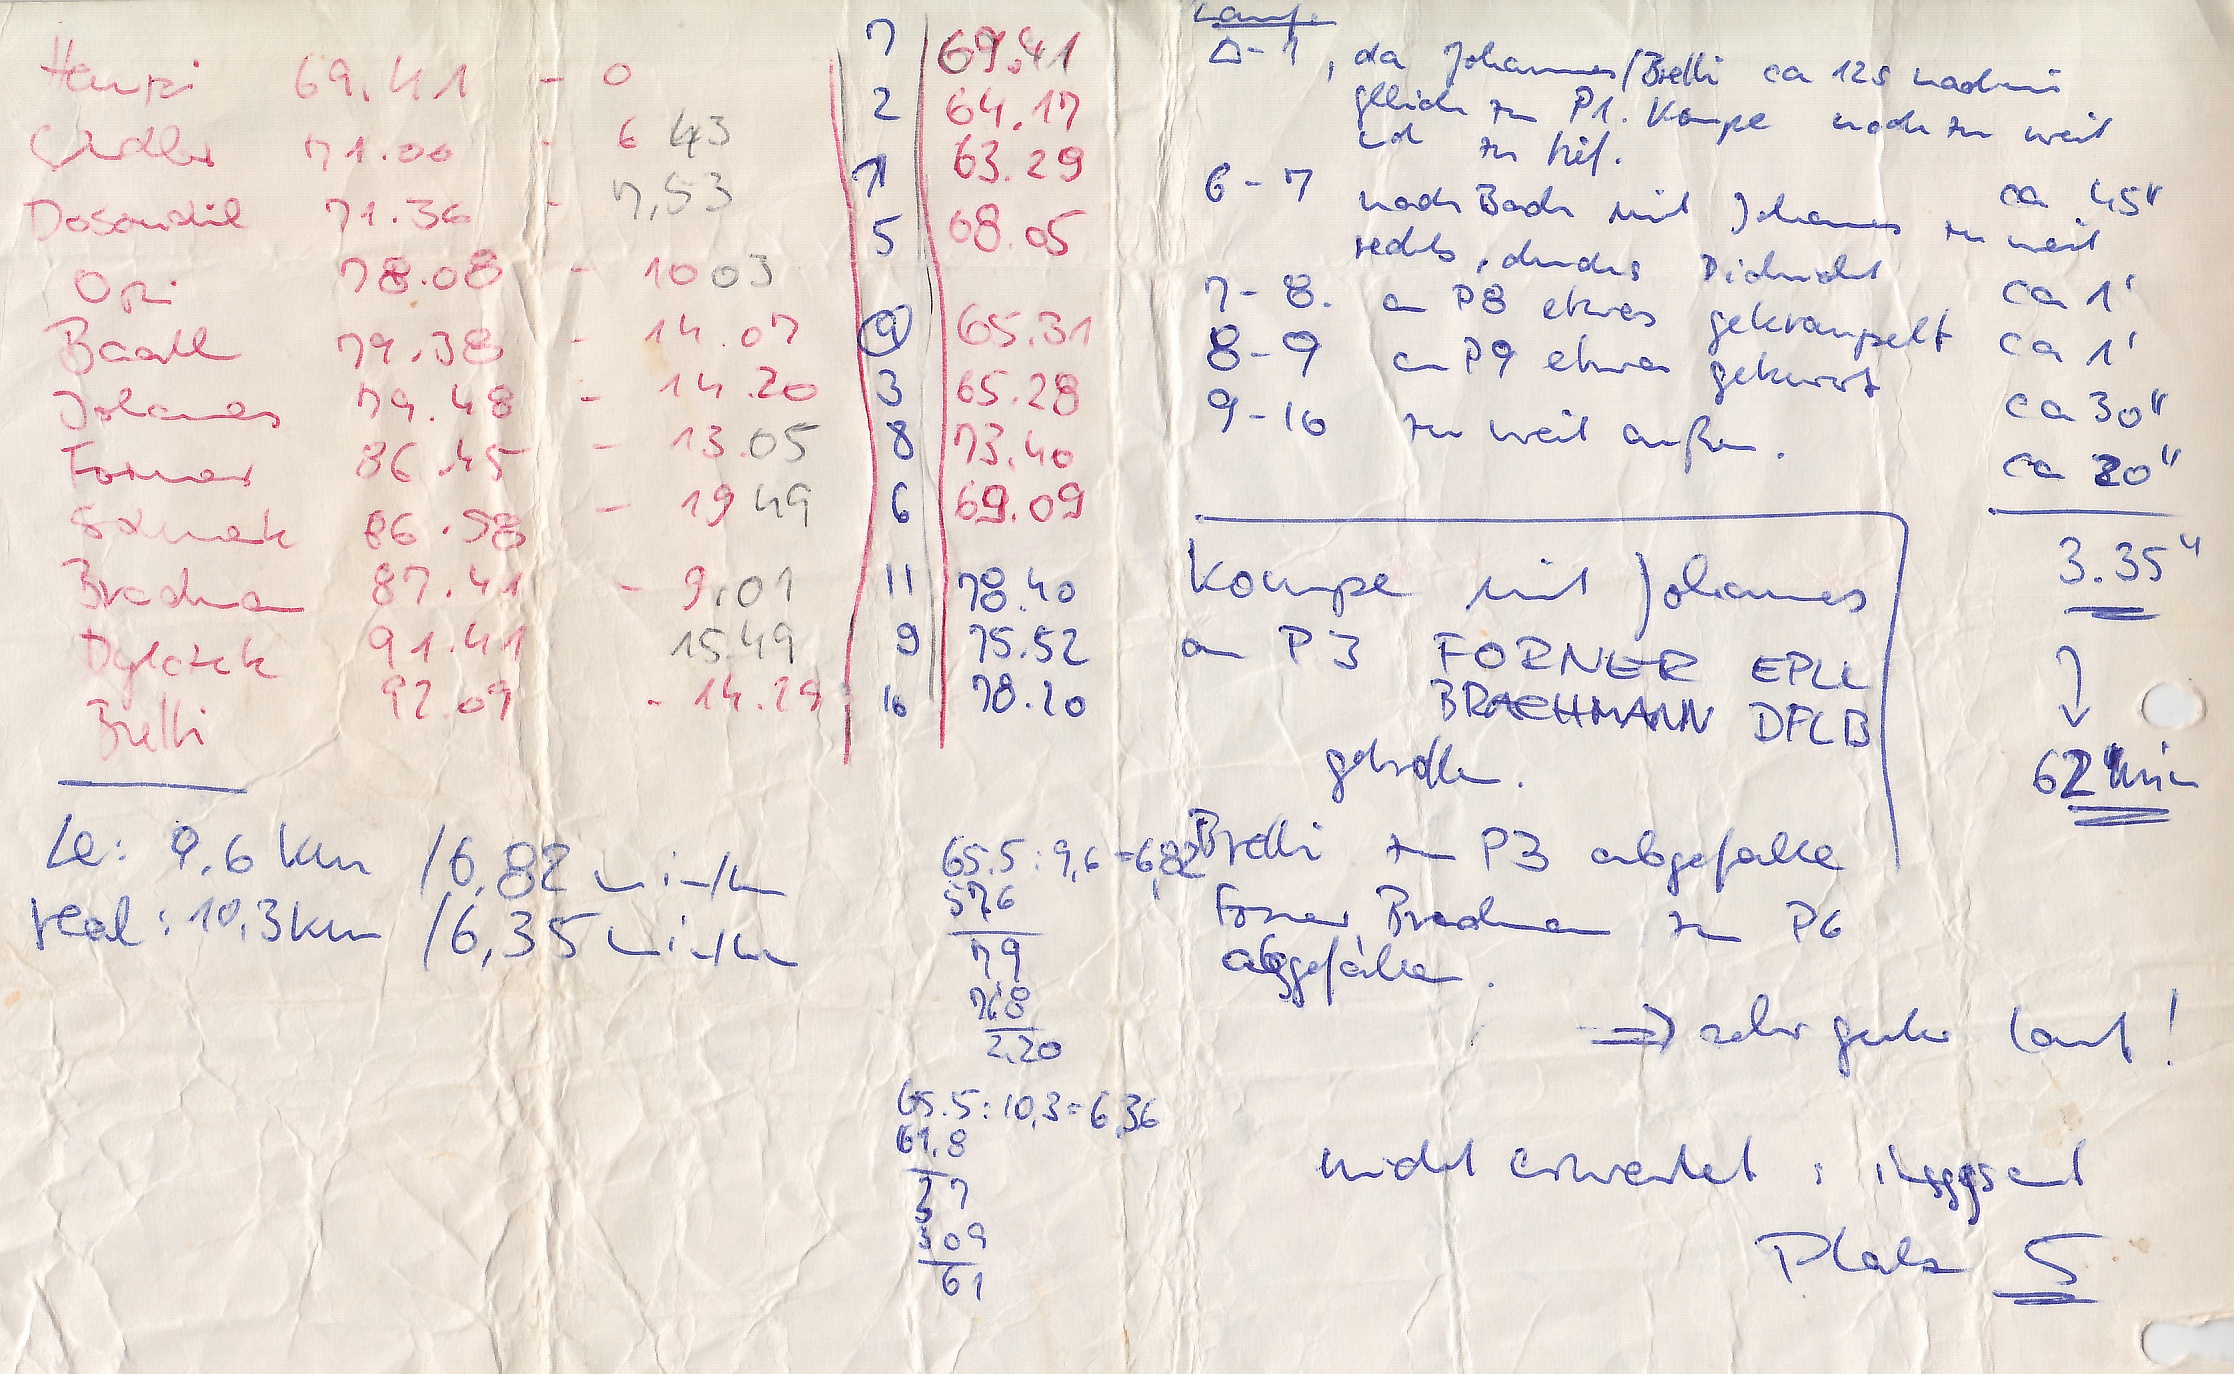 69.41 - 0 7 69.41
71.00 - 6 43 2 64.17
71.36 - 7,53 1 63.29
Opi 78.08 - 10 03 5 68.05
79.38 - 14.07 4 65.31
Johannes 79.48 - 14.20 3 65.28
Forner 86.45 - 13.05 8 73.40
86.58 - 19 49 6 69.09
Brachmann 87.41 - 9,01 11 78.40
91.41 15.49 9 75.52
Brelli 92.09 - 14.29 10 78.20
Le: 9,6 km /6,82 min/km
real: 10,3 km /6,35 min/km
65.5 : 9,6 = 6,82
576
79
768
2.20
65.5 : 10,3 = 6,36
61.8
37
309
61
Δ-1, da Johannes/Brelli ca 12s nach mir
gleich zu P1. Kompe noch zu weit
und zu tief. ca 45"
6-7 nach Bach mit Johannes zu weit
rechts, durchs Dickicht ca 1'
7-8. an P8 etwas gekrampelt ca 1'
8-9 an P9 etwas gekurvt ca 30"
9-10 zu weit außen. ca 20"
3.35"
62 min
Kompe mit Johannes
an P3 FORNER EPLL
BRACHMANN DFCB
geholt.
Brelli zu P3 abgefallen
Forner, Brachmann zu P6
abgefallen.
⇒ sehr guter Lauf!
nicht erwartet, insgesamt
Platz 5